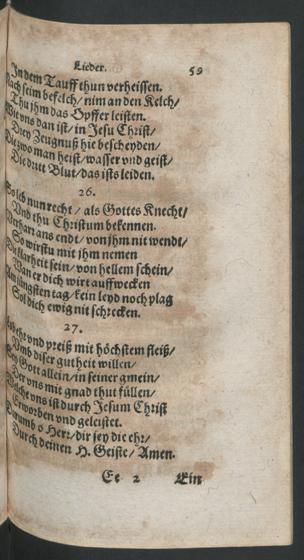 Lieder. 59
In dem Tauff thun verheissen.
Nach seim befelch/ nim an den Kelch/
Thu jhm das Opffer leisten.
Wie vns dan ist/ in Jesu Christ/
Drey Zeugnuß hie bescheyden/
Die zwo man heist/ wasser vnd geist/
Die dritt Blut/ das ists leiden.
26.
So ich nun recht/ als Gottes Knecht/
Vnd thu Christum bekennen.
Verharr ans endt/ von jhm nit wendt/
So wirstu mit jhm nemen
Die klarheit sein/ von hellem schein/
Wan er dich wirt aufwecken
Am jüngsten tag/ kein leyd noch plag
Sol dich ewig nit schrecken.
27.
Lob ehr vnd preiß mit höchstem fleiß/
Vmb diser gutheit willen/
Sey Gott allein/ in seiner gmein/
Der vns mit gnad thut füllen/
Welche vns ist durch Jesum Christ
Erworben vnd geleistet.
Darumb o Herr/ dir sey die ehr/
Durch deinen H. Geiste/ Amen.
Ee 2 Ein